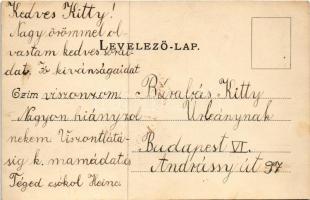 Kedves Kitty!
Nagy örömmel ol-
vastam kedves sorai-
dat. Jó kivánságaidat
viszonzom.
Nagyon hiányzol
nekem. Viszontlátá-
sig k. mamádat és
Téged csókol
LEVELEZŐ-LAP.
Czim
Barabás Kitty
Urleánynak
Budapest VI.
Andrássy út 97